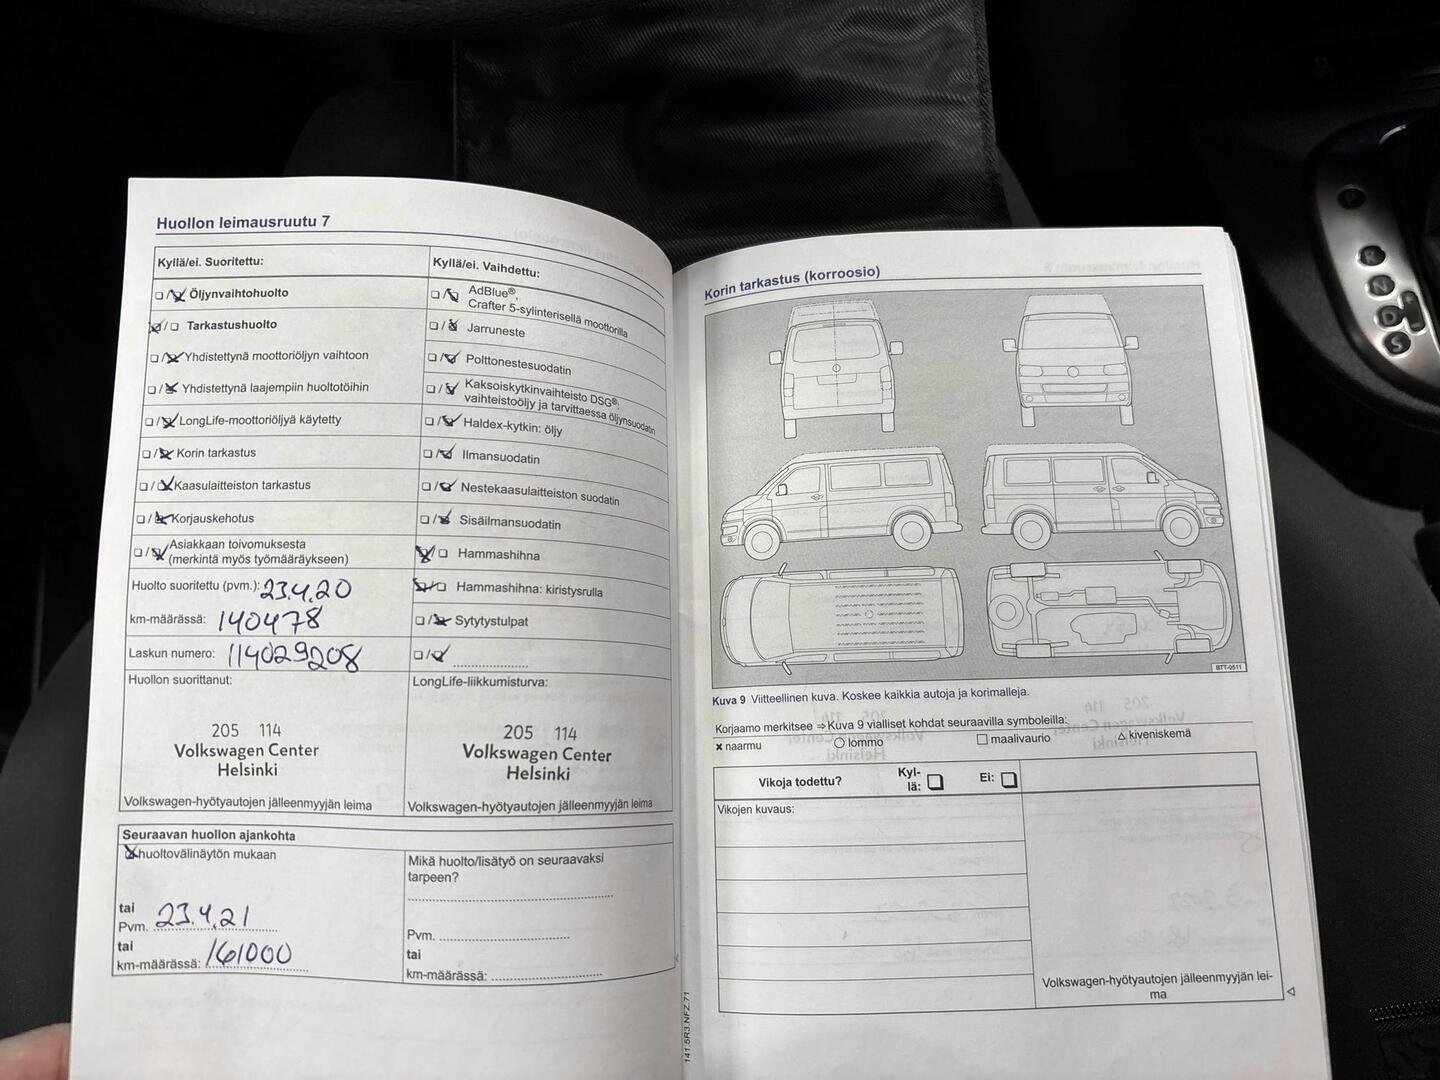 Huollon leimausruutu 7
Kyllä/ei. Suoritettu:
Öljynvaihtohuolto
Tarkastushuolto
Yhdistettynä moottoriöljyn vaihtoon
Yhdistettynä laajempiin huoltotöihin
LongLife-moottoriöljyä käytetty
Korin tarkastus
Kaasulaitteiston tarkastus
Korjauskehotus
Asiakkaan toivomuksesta
(merkintä myös työmääräykseen)
Huolto suoritettu (pvm.): 23.4.20
km-määrässä: 140478
Laskun numero: 114029208
Huollon suorittanut:
205 114
Volkswagen Center
Helsinki
Volkswagen-hyötyautojen jälleenmyyjän leima
Kyllä/ei. Vaihdettu:
AdBlue®,
Crafter 5-sylinterisellä moottorilla
Jarruneste
Polttonestesuodatin
Kaksoiskytkinvaihteisto DSG®:
vaihteistoöljy ja tarvittaessa öljynsuodatin
Haldex-kytkin: öljy
Ilmansuodatin
Nestekaasulaitteiston suodatin
Sisäilmansuodatin
Hammashihna
Hammashihna: kiristysrulla
Sytytystulpat
LongLife-liikkumisturva:
205 114
Volkswagen Center
Helsinki
Volkswagen-hyötyautojen jälleenmyyjän leima
Seuraavan huollon ajankohta
huoltovälinäytön mukaan
tai
Pvm. 23.4.21
tai
km-määrässä: 161000
Mikä huolto/lisätyö on seuraavaksi
tarpeen?
Pvm.
tai
km-määrässä:
141.5R3.NFZ.71
Korin tarkastus (korroosio)
BTT-0511
Kuva 9 Viitteellinen kuva. Koskee kaikkia autoja ja korimalleja.
Korjaamo merkitsee ⇒ Kuva 9 vialliset kohdat seuraavilla symboleilla:
× naarmu ○ lommo □ maalivaurio △ kiveniskemä
Vikoja todettu? Kyl-
lä: Ei:
Vikojen kuvaus:
Volkswagen-hyötyautojen jälleenmyyjän lei-
ma
P
R
N
D
S